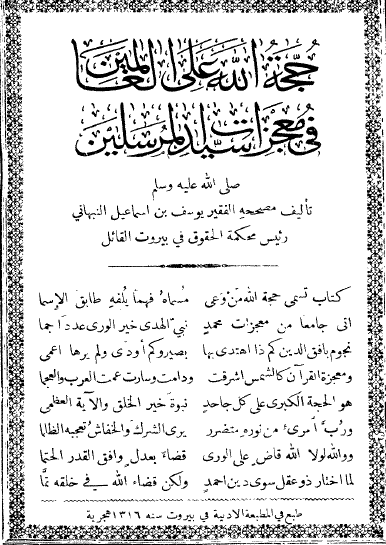 حُجَّةُ اللهِ عَلَى العَالَمِينَ
فِي مُعْجِزَاتِ سَيِّدِ المُرْسَلِينَ
صلى الله عليه وسلم
تأليف مصححه الفقير يوسف بن اسماعيل النبهاني
رئيس محكمة الحقوق في بيروت القائل
كتاب تسمى حجة الله مَنْ وَعَى مُسماهُ فهمًا يُلفهِ طابق الإسما
اتى جامعًا من معجزات محمدٍ نبيّ الهدى خير الورى عددا جما
نجوم بافق الدين كم ذا اهتدى بها بصير وكم أودى ولم يرها اعمى
ومعجزة القرآن كالشمس اشرقت ودامت وسارت عمت العرب والعجما
هو الحجة الكبرى على كل جاحد نبوة خير الخلق والآية العظمى
ورُبّ أمرئ من نوره متضرر يرى الشرك والخفاش تعجبه الظلما
ووالله لولا الله قاضٍ على الورى قضاءً بعدلٍ وافق القدر الحتما
لما اختار ذو عقل سوى دين احمدٍ ولكن قضاء الله في خلقه تمَّا
طبع في المطبعة الادبية في بيروت سنه ١٣١٦ هجرية